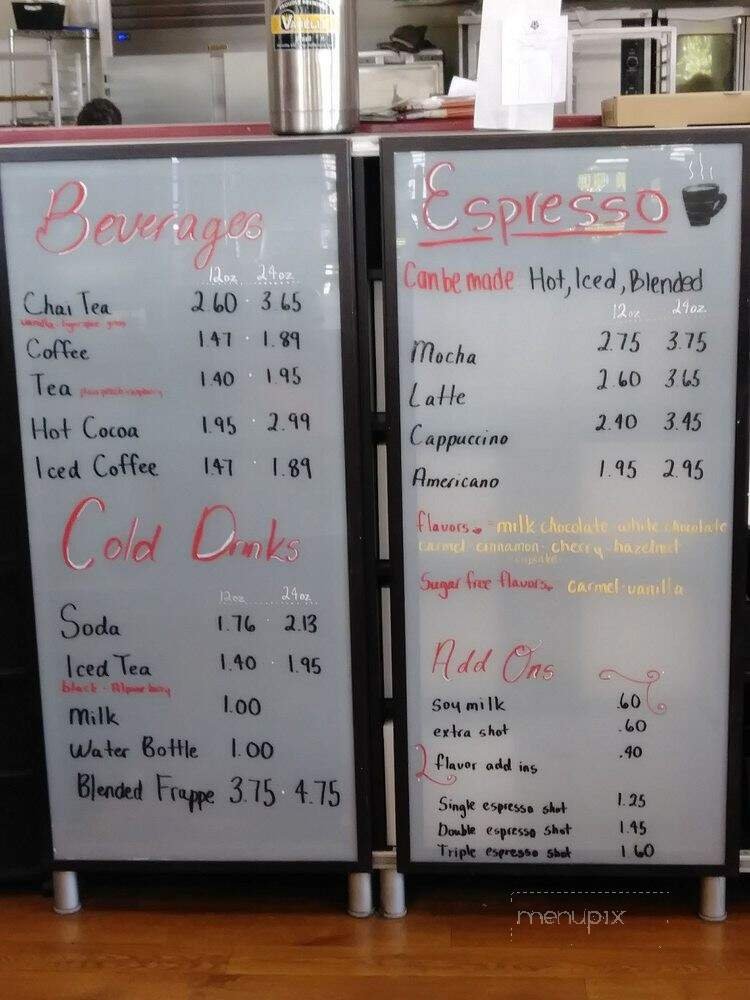 Beverages
12oz 24oz
Chai Tea 2.60 · 3.65
Coffee 1.47 · 1.89
Tea
1.40 · 1.95
Hot Cocoa 1.95 · 2.99
Iced Coffee 1.47 · 1.89
Cold Drinks
12oz 24oz
Soda 1.76 · 2.13
Iced Tea 1.40 · 1.95
black
Milk 1.00
Water Bottle 1.00
Blended Frappe 3.75 · 4.75
Espresso
Can be made Hot, Iced, Blended
12oz 24oz
Mocha 2.75 3.75
Latte 2.60 3.65
Cappuccino 2.40 3.45
Americano 1.95 2.95
flavors - milk chocolate white chocolate
carmel · cinnamon · cherry · hazelnut
cupcake
Sugar free flavors carmel · vanilla
Add Ons
soy milk .60
extra shot .60
flavor add ins .40
Single espresso shot 1.25
Double espresso shot 1.45
Triple espresso shot 1.60
menupix